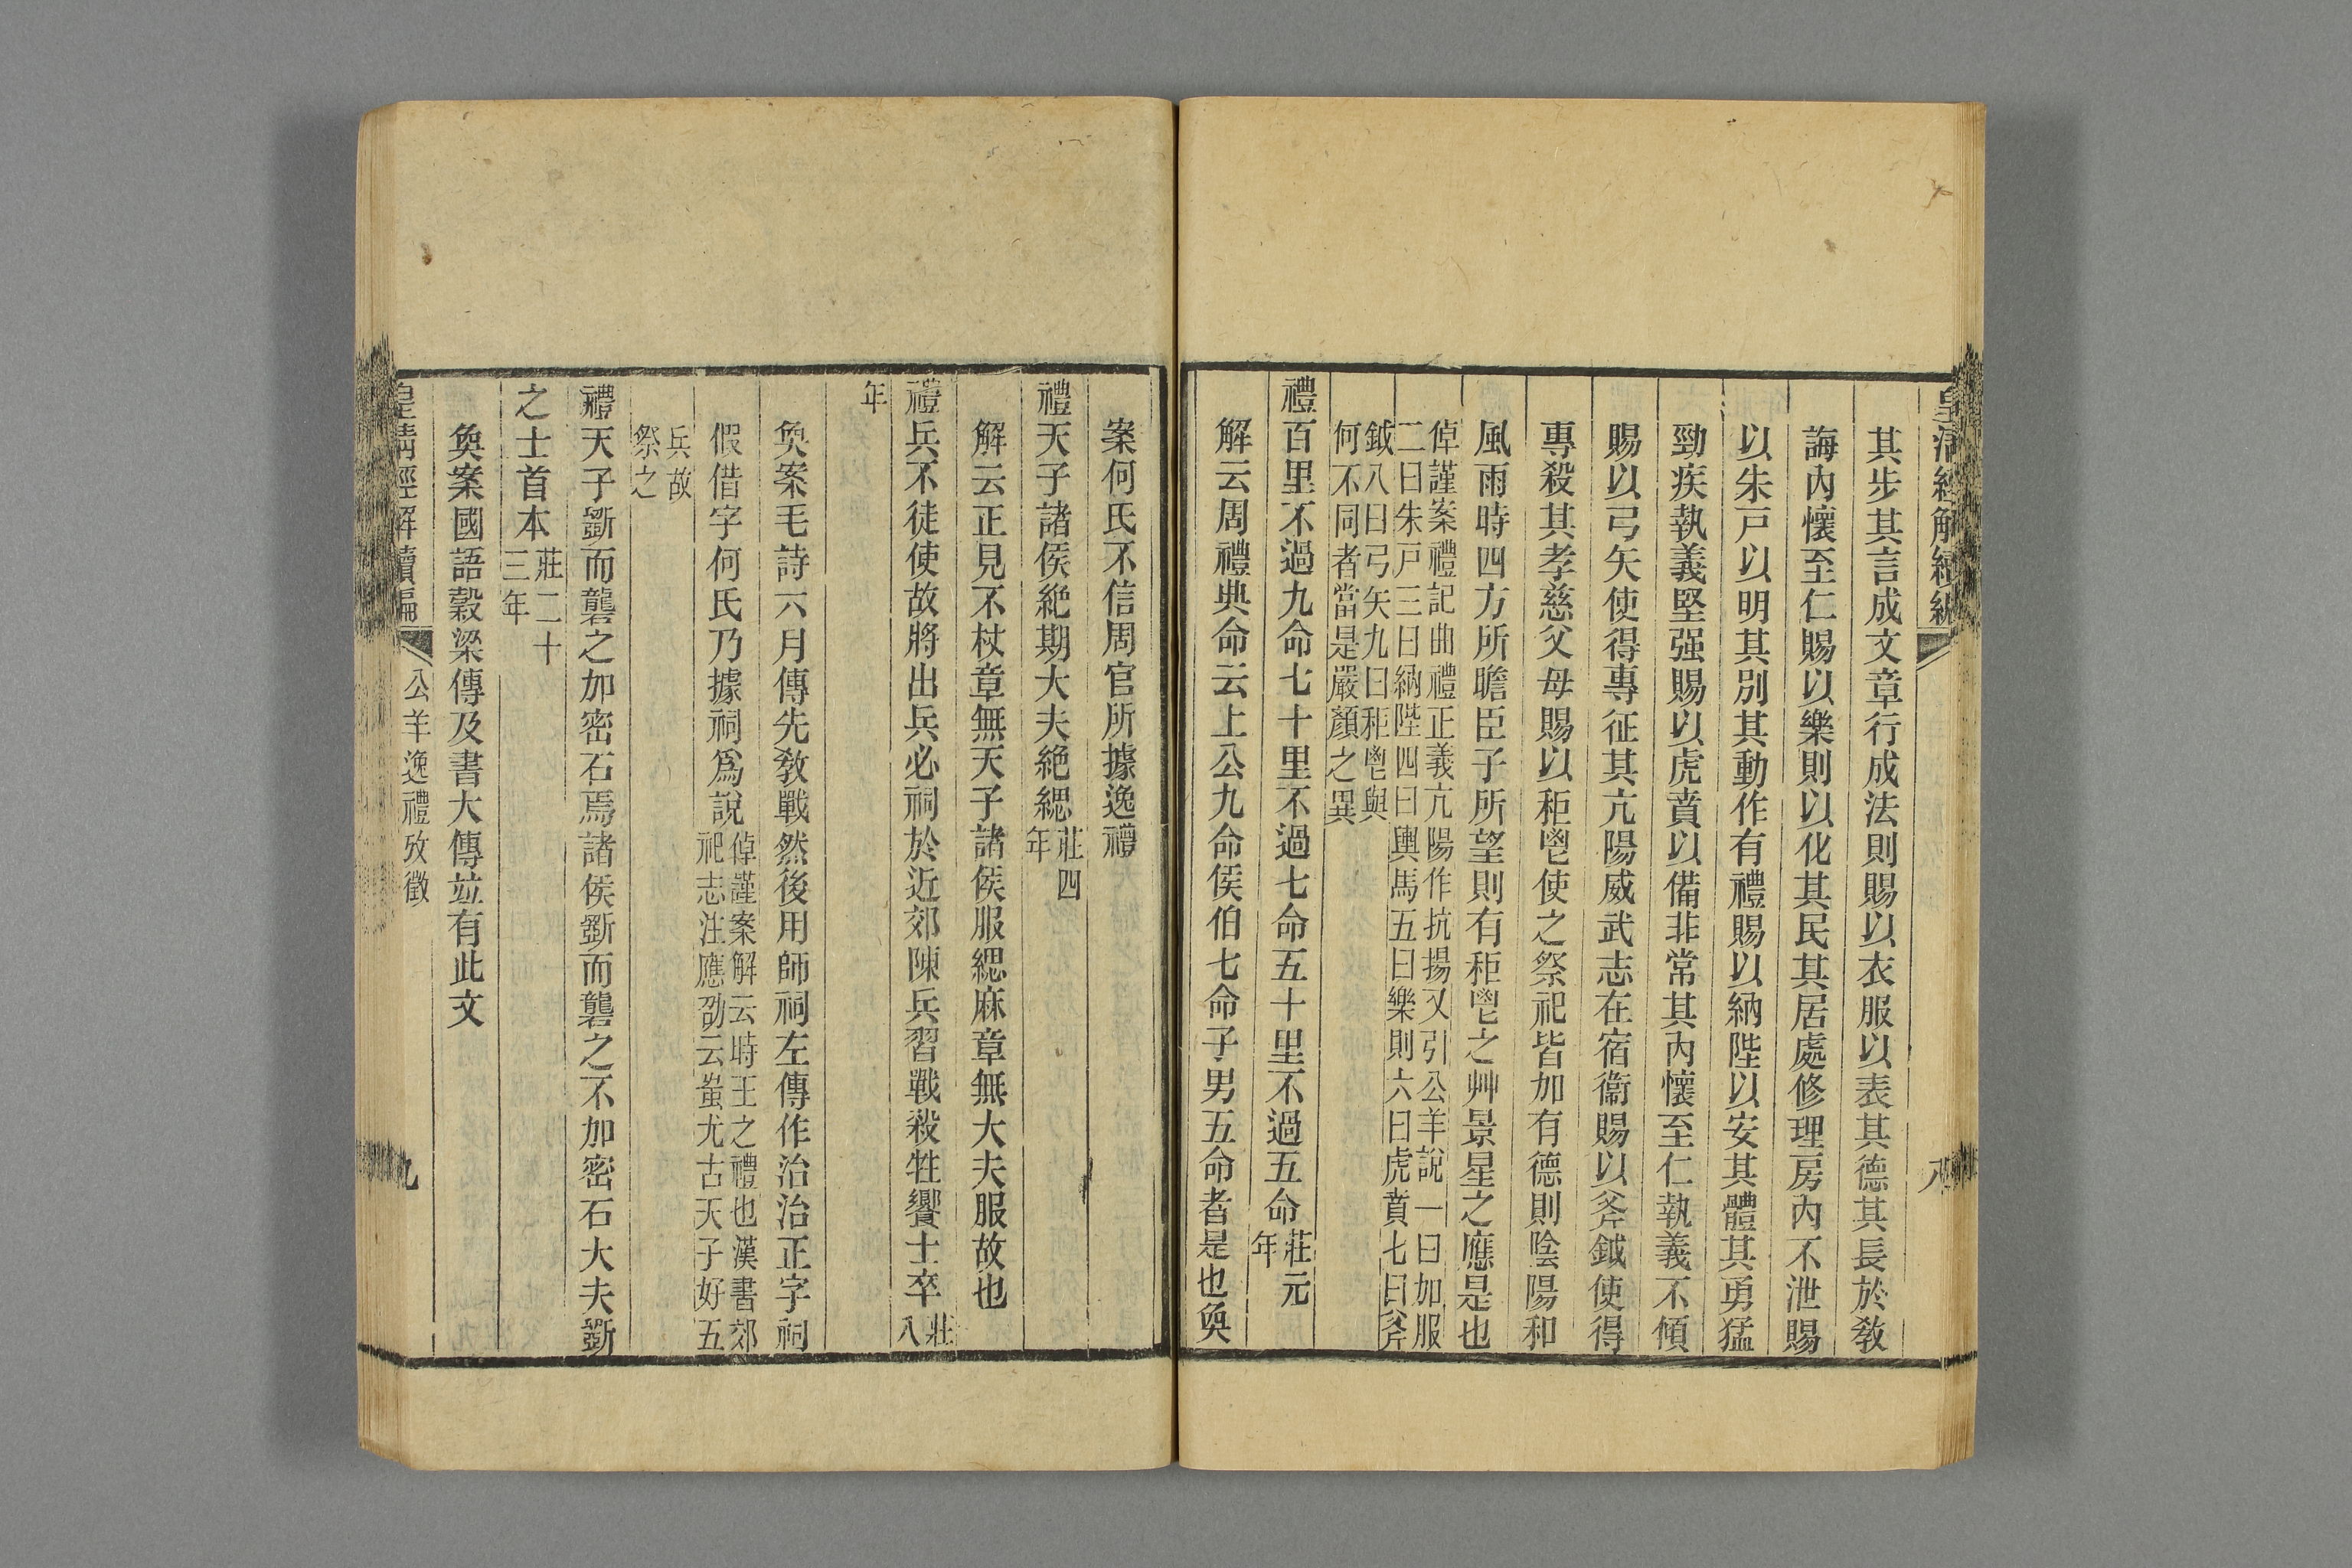 皇清經解續編
八
其步其言成文章行成法則賜以衣服以表其德其長於敎
誨內懷至仁賜以樂則以化其民其居處修理房內不泄賜
以朱戸以明其別其動作有禮賜以納陛以安其體其勇猛
勁疾執義堅强賜以虎賁以備非常其內懷至仁執義不傾
賜以弓矢使得專征其亢陽威武志在宿衞賜以斧鉞使得
專殺其孝慈父母賜以秬鬯使之祭祀皆加有德則陰陽和
風雨時四方所瞻臣子所望則有秬鬯之艸景星之應是也
倬謹案禮記曲禮正義亢陽作抗揚又引公羊說一曰加服
二曰朱戸三曰納陛四曰輿馬五曰樂則六曰虎賁七曰斧
鉞八曰弓矢九曰秬鬯與
何不同者當是嚴顏之異
禮百里不過九命七十里不過七命五十里不過五命莊元年
解云周禮典命云上公九命侯伯七命子男五命者是也奐
案何氏不信周官所據逸禮
禮天子諸侯絶期大夫絶緦莊四年
解云正見不杖章無天子諸侯服緦麻章無大夫服故也
禮兵不徒使故將出兵必祠於近郊陳兵習戰殺牲饗士卒莊八
年
奐案毛詩六月傳先敎戰然後用師祠左傳作治治正字祠
假借字何氏乃據祠爲說倬謹案解云時王之禮也漢書郊
祀志注應劭云蚩尤古天子好五
兵故
祭之
禮天子斲而礱之加密石焉諸侯斲而礱之不加密石大夫斲
之士首本莊二十三年
奐案國語穀梁傳及書大傳竝有此文
皇淸經解續編
公羊逸禮攷徵
九